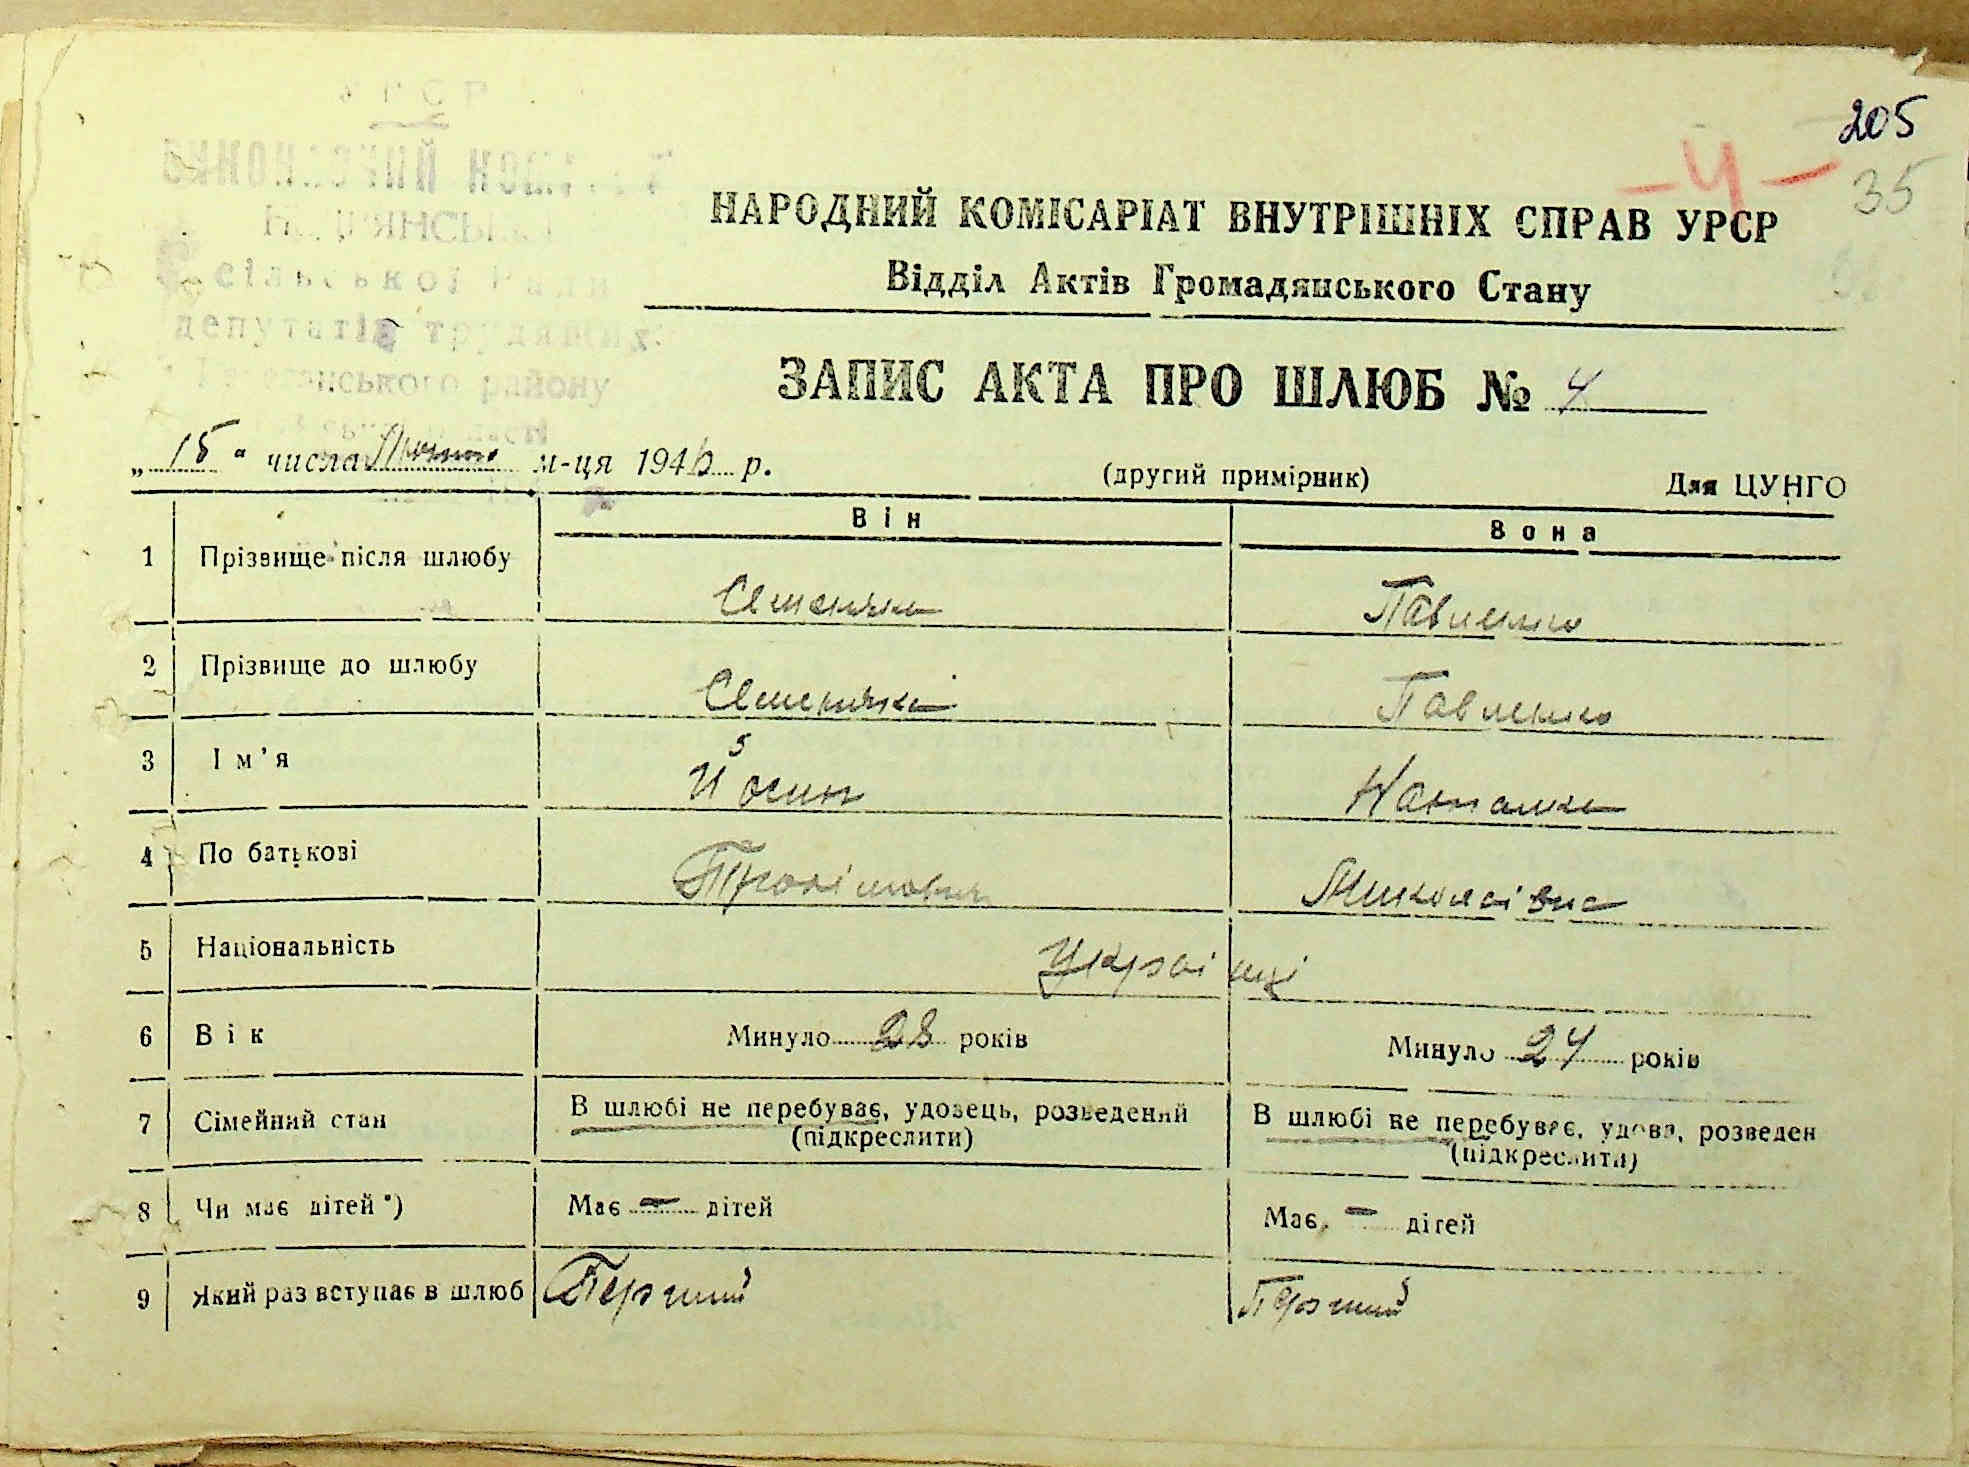 205
-4- 35
НАРОДНИЙ КОМІСАРІАТ ВНУТРІШНІХ СПРАВ УРСР
Відділ Актів Громадянського Стану
сільської Ради
депутатів трудящих
району
ЗАПИС АКТА ПРО ШЛЮБ № 4
„15" числа Лютого м-ця 1946 р. (другий примірник) Для ЦУНГО
Він Вона
1 Прізвище після шлюбу Павленко
2 Прізвище до шлюбу Павленко
3 Ім'я Йосип Наталка
4 По батькові Миколаївна
5 Національність Українці
6 Вік Минуло 28 років Минуло 24 років
7 Сімейний стан В шлюбі не перебуває, удовець, розведений В шлюбі не перебуває, удова, розведен
(підкреслити) (підкреслити)
8 Чи має дітей *) Має – дітей Має – дітей
9 Який раз вступає в шлюб Перший Перший